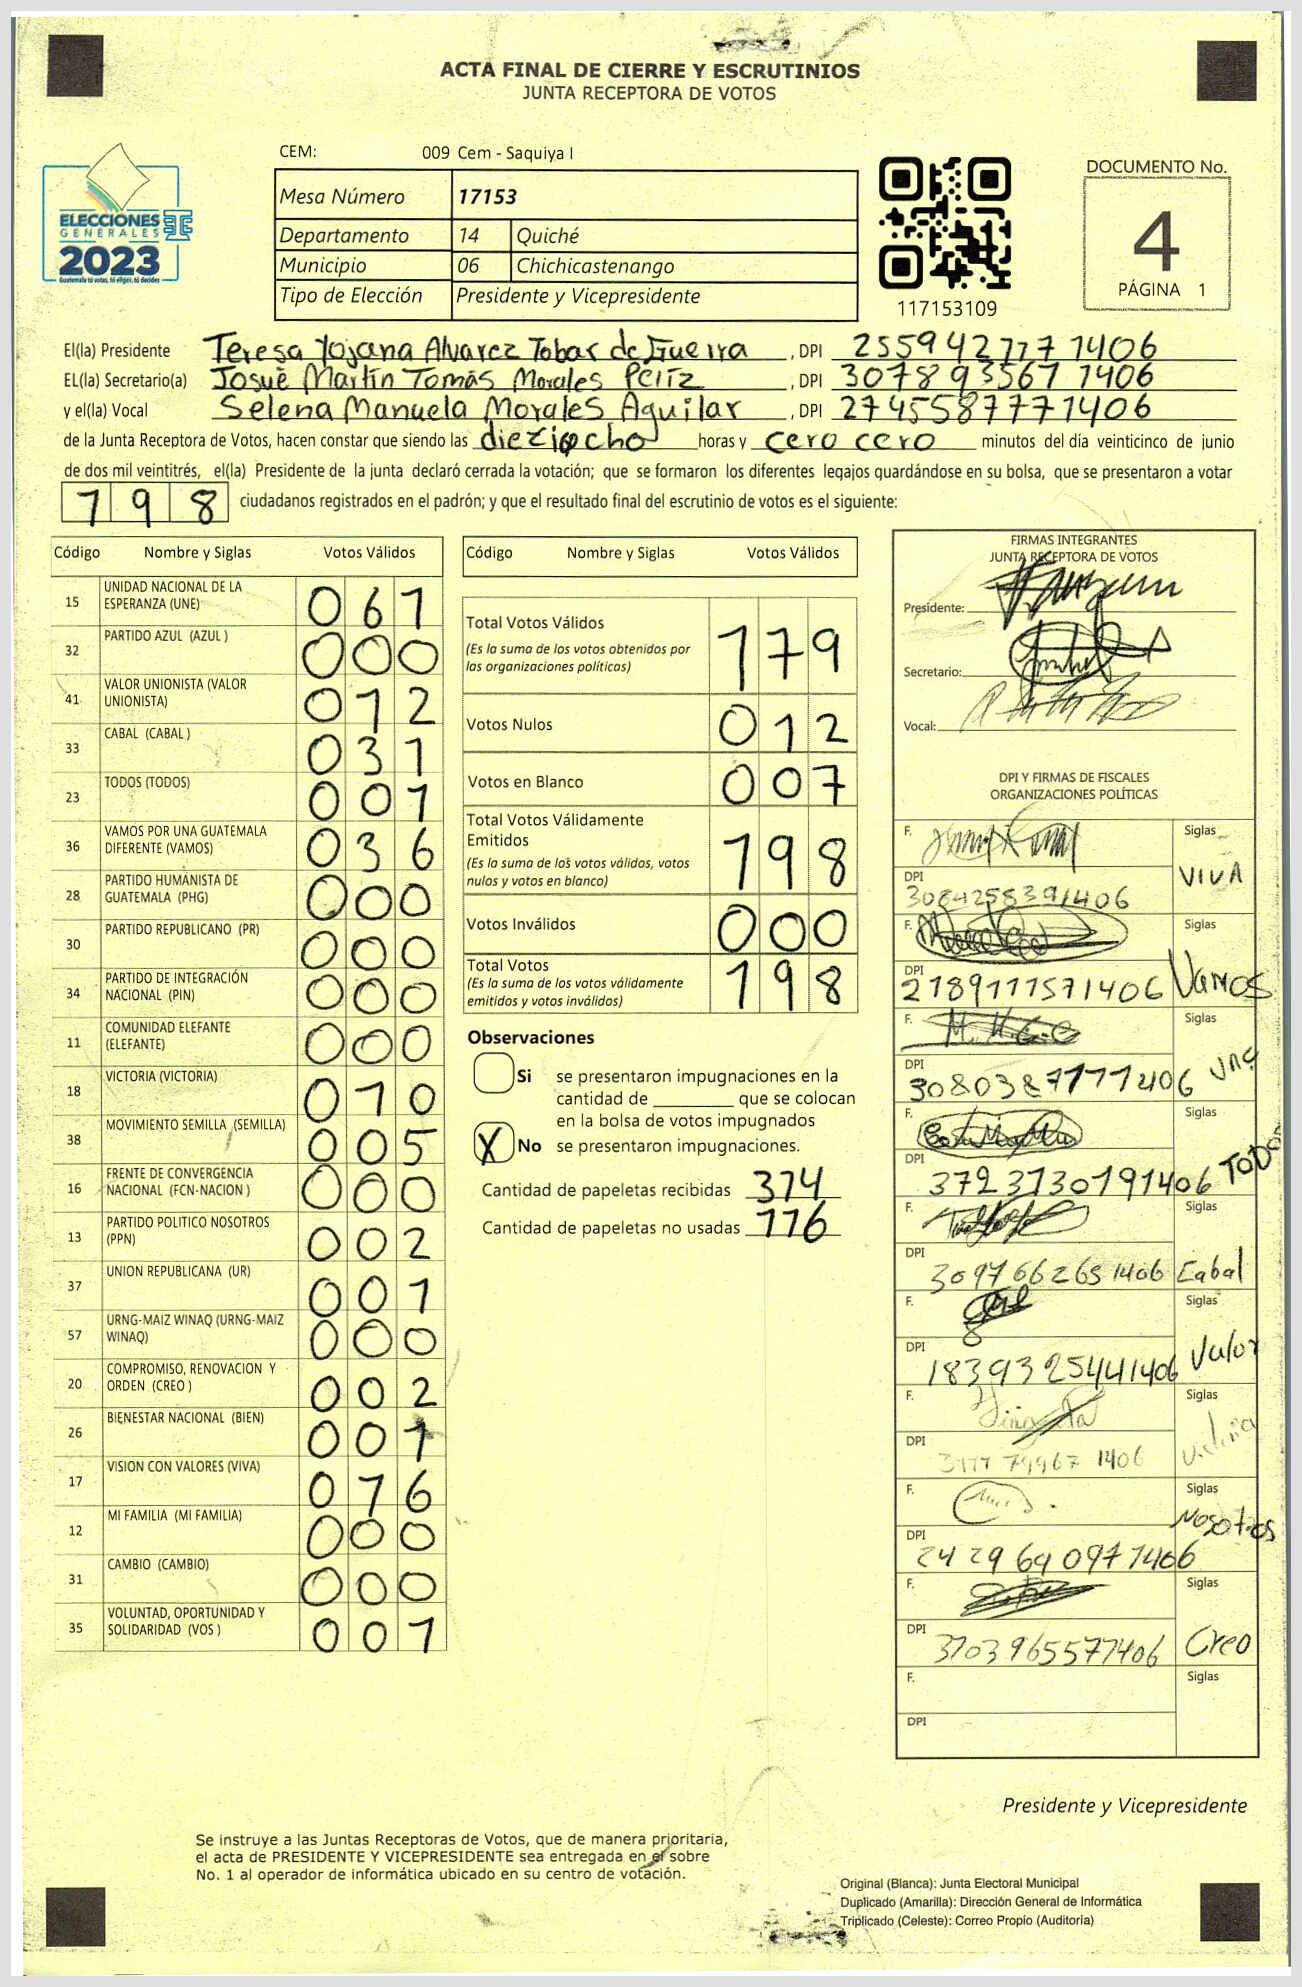 ACTA FINAL DE CIERRE Y ESCRUTINIOS
JUNTA RECEPTORA DE VOTOS
ELECCIONES
GENERALES
2023
Guatemala tú votas, tú eliges, tú decides
CEM: 009 Cem - Saquiya I
Mesa Número 17153
Departamento 14 Quiché
Municipio 06 Chichicastenango
Tipo de Elección Presidente y Vicepresidente
117153109
DOCUMENTO No.
4
PÁGINA 1
El(la) Presidente Teresa Yojana Alvarez Tobar de Guerra , DPI
EL(la) Secretario(a) Josué Martín Tomás Morales Pérez , DPI 3078935671406
y el(la) Vocal Selena Manuela Morales Aguilar , DPI 2745587771406
de la Junta Receptora de Votos, hacen constar que siendo las dieziocho horas y cero cero minutos del día veinticinco de junio
de dos mil veintitrés, el(la) Presidente de la junta declaró cerrada la votación; que se formaron los diferentes legajos guardándose en su bolsa, que se presentaron a votar
198 ciudadanos registrados en el padrón; y que el resultado final del escrutinio de votos es el siguiente:
Código Nombre y Siglas Votos Válidos
15 UNIDAD NACIONAL DE LA ESPERANZA (UNE) 061
32 PARTIDO AZUL (AZUL ) 000
41 VALOR UNIONISTA (VALOR UNIONISTA) 012
33 CABAL (CABAL ) 031
23 TODOS (TODOS) 001
36 VAMOS POR UNA GUATEMALA DIFERENTE (VAMOS) 036
28 PARTIDO HUMANISTA DE GUATEMALA (PHG) 000
30 PARTIDO REPUBLICANO (PR) 000
34 PARTIDO DE INTEGRACIÓN NACIONAL (PIN) 000
11 COMUNIDAD ELEFANTE (ELEFANTE) 000
18 VICTORIA (VICTORIA) 010
38 MOVIMIENTO SEMILLA (SEMILLA) 005
16 FRENTE DE CONVERGENCIA NACIONAL (FCN-NACION ) 000
13 PARTIDO POLITICO NOSOTROS (PPN) 002
37 UNION REPUBLICANA (UR) 001
57 URNG-MAIZ WINAQ (URNG-MAIZ WINAQ) 000
20 COMPROMISO, RENOVACION Y ORDEN (CREO ) 002
26 BIENESTAR NACIONAL (BIEN) 001
17 VISION CON VALORES (VIVA) 016
12 MI FAMILIA (MI FAMILIA) 000
31 CAMBIO (CAMBIO) 000
35 VOLUNTAD, OPORTUNIDAD Y SOLIDARIDAD (VOS ) 001
Código Nombre y Siglas Votos Válidos
Total Votos Válidos 179
(Es la suma de los votos obtenidos por
las organizaciones políticas)
Votos Nulos 012
Votos en Blanco 007
Total Votos Válidamente
Emitidos 198
(Es la suma de los votos válidos, votos
nulos y votos en blanco)
Votos Inválidos 000
Total Votos 198
(Es la suma de los votos válidamente
emitidos y votos inválidos)
Observaciones
Si se presentaron impugnaciones en la
cantidad de ________ que se colocan
en la bolsa de votos impugnados
X No se presentaron impugnaciones.
Cantidad de papeletas recibidas 374
Cantidad de papeletas no usadas 176
FIRMAS INTEGRANTES
JUNTA RECEPTORA DE VOTOS
Presidente:
Secretario:
Vocal:
DPI Y FIRMAS DE FISCALES
ORGANIZACIONES POLÍTICAS
F. Siglas
DPI 3084258391406 VIVA
F. Siglas
DPI 2189111571406 Vamos
F. Siglas
DPI 3080387171406 une
F. Siglas
DPI 3723730191406 TODOS
F. Siglas
DPI 3097662651406 Cabal
F. Siglas
DPI 1839325441406 Valor
F. Siglas
DPI
F. Siglas
DPI 2429690971406 Nosotros
F. Siglas
DPI 3703965571406 Creo
F. Siglas
DPI
Presidente y Vicepresidente
Se instruye a las Juntas Receptoras de Votos, que de manera prioritaria,
el acta de PRESIDENTE Y VICEPRESIDENTE sea entregada en el sobre
No. 1 al operador de informática ubicado en su centro de votación.
Original (Blanca): Junta Electoral Municipal
Duplicado (Amarilla): Dirección General de Informática
Triplicado (Celeste): Correo Propio (Auditoría)